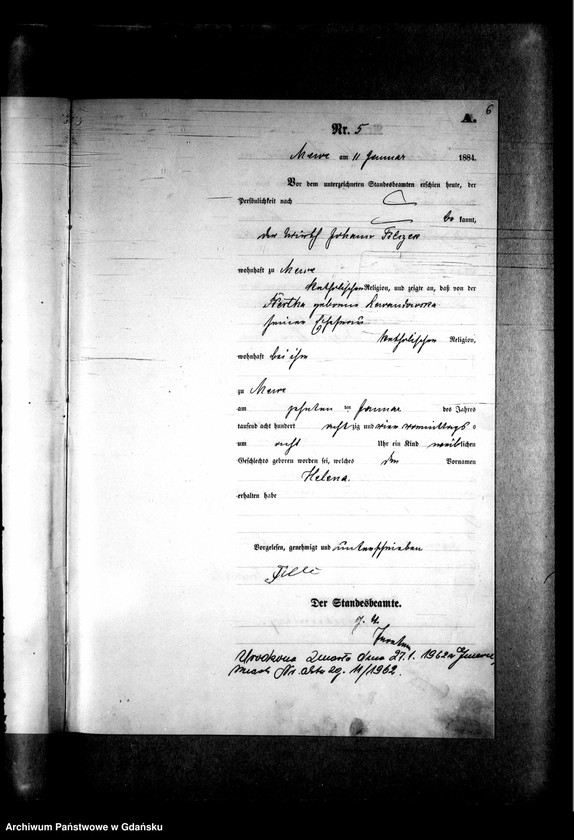 6
A.
Nr. 5
Mewe am 11 Januar 1884.
Vor dem unterzeichneten Standesbeamten erschien heute, der
Persönlichkeit nach
be kannt,
der Wirth Johann
wohnhaft zu Mewe
katholischen Religion, und zeigte an, daß von der
geborene Lewandowska
seiner Ehefrau
katholischen Religion,
wohnhaft bei ihm
zu Mewe
am zehnten ten Januar des Jahres
tausend acht hundert acht zig und vier vormittags
um acht Uhr ein Kind weiblichen
Geschlechts geboren worden sei, welches den Vornamen
Helena.
erhalten habe
Vorgelesen, genehmigt und unterschrieben
Der Standesbeamte.
Urodzona zmarła dnia 27.1.1962 r
Nr. aktu zg. 11/1962.
Archiwum Państwowe w Gdańsku